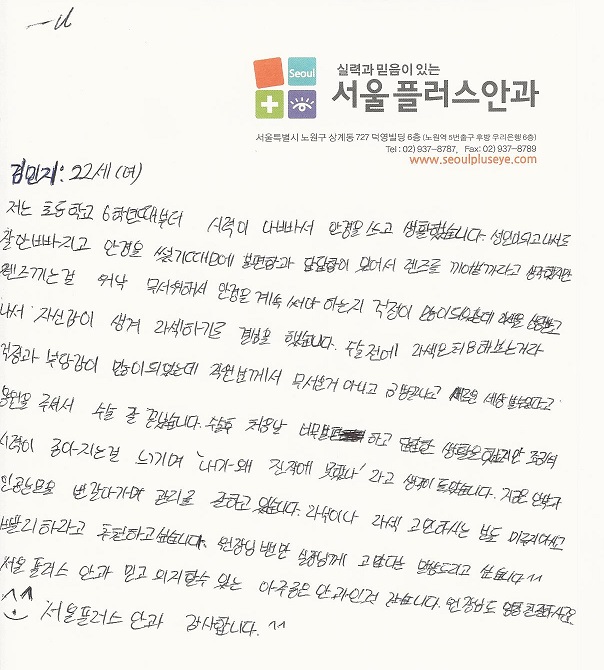 Seoul
실력과 믿음이 있는
서울플러스안과
서울특별시 노원구 상계동 727 덕영빌딩 6층 (노원역 5번출구 후방 우리은행 6층)
Tel : 02) 937–8787, Fax: 02) 937–8789
www.seoulpluseye.com
김민지: 22세 (여)
저는 초등학교 6학년때부터 시력이 나빠서 안경을 쓰고 생활했습니다. 성인이되고나서도
잘안빠지고 안경을 썼기때문에 불편함과 답답함이 있어서 렌즈로 끼어볼까라고 생각했지만
렌즈끼는걸 워낙 무서워해서 안경을 계속 써야 하는지 걱정이 많이되었는데 라섹을
나서 자신감이 생겨 라섹하기로 결심을 했습니다. 수술전에 라섹은처음해보는거라
걱정과 부담감이 많이되었는데 직원분께서 무서운거 아니고 금방끝나고 새로운 세상 볼수있다고
용인을 주셔서 수술 잘 끝났습니다. 수술후 처음날 너무 하고 답답한 생활을했지만 조금씩
시력이 좋아지는걸 느끼며 '내가 왜 진작에 못했나' 라고 생각이 들었습니다. 지금은 안약과
인공눈물을 번갈아가며 관리를 잘하고 있습니다. 라식이나 라섹 고민하시는 분도 미루지마시고
빨리하라고 추천하고싶습니다. 원장님 뿐만 실장님께 고맙다는 말씀드리고 싶습니다 ^^
서울 플러스 안과 믿고 의지할수 있는 아주좋은 안과인것 같습니다. 원장님도 엄청 친절하시고요
서울플러스 안과 감사합니다. ^^